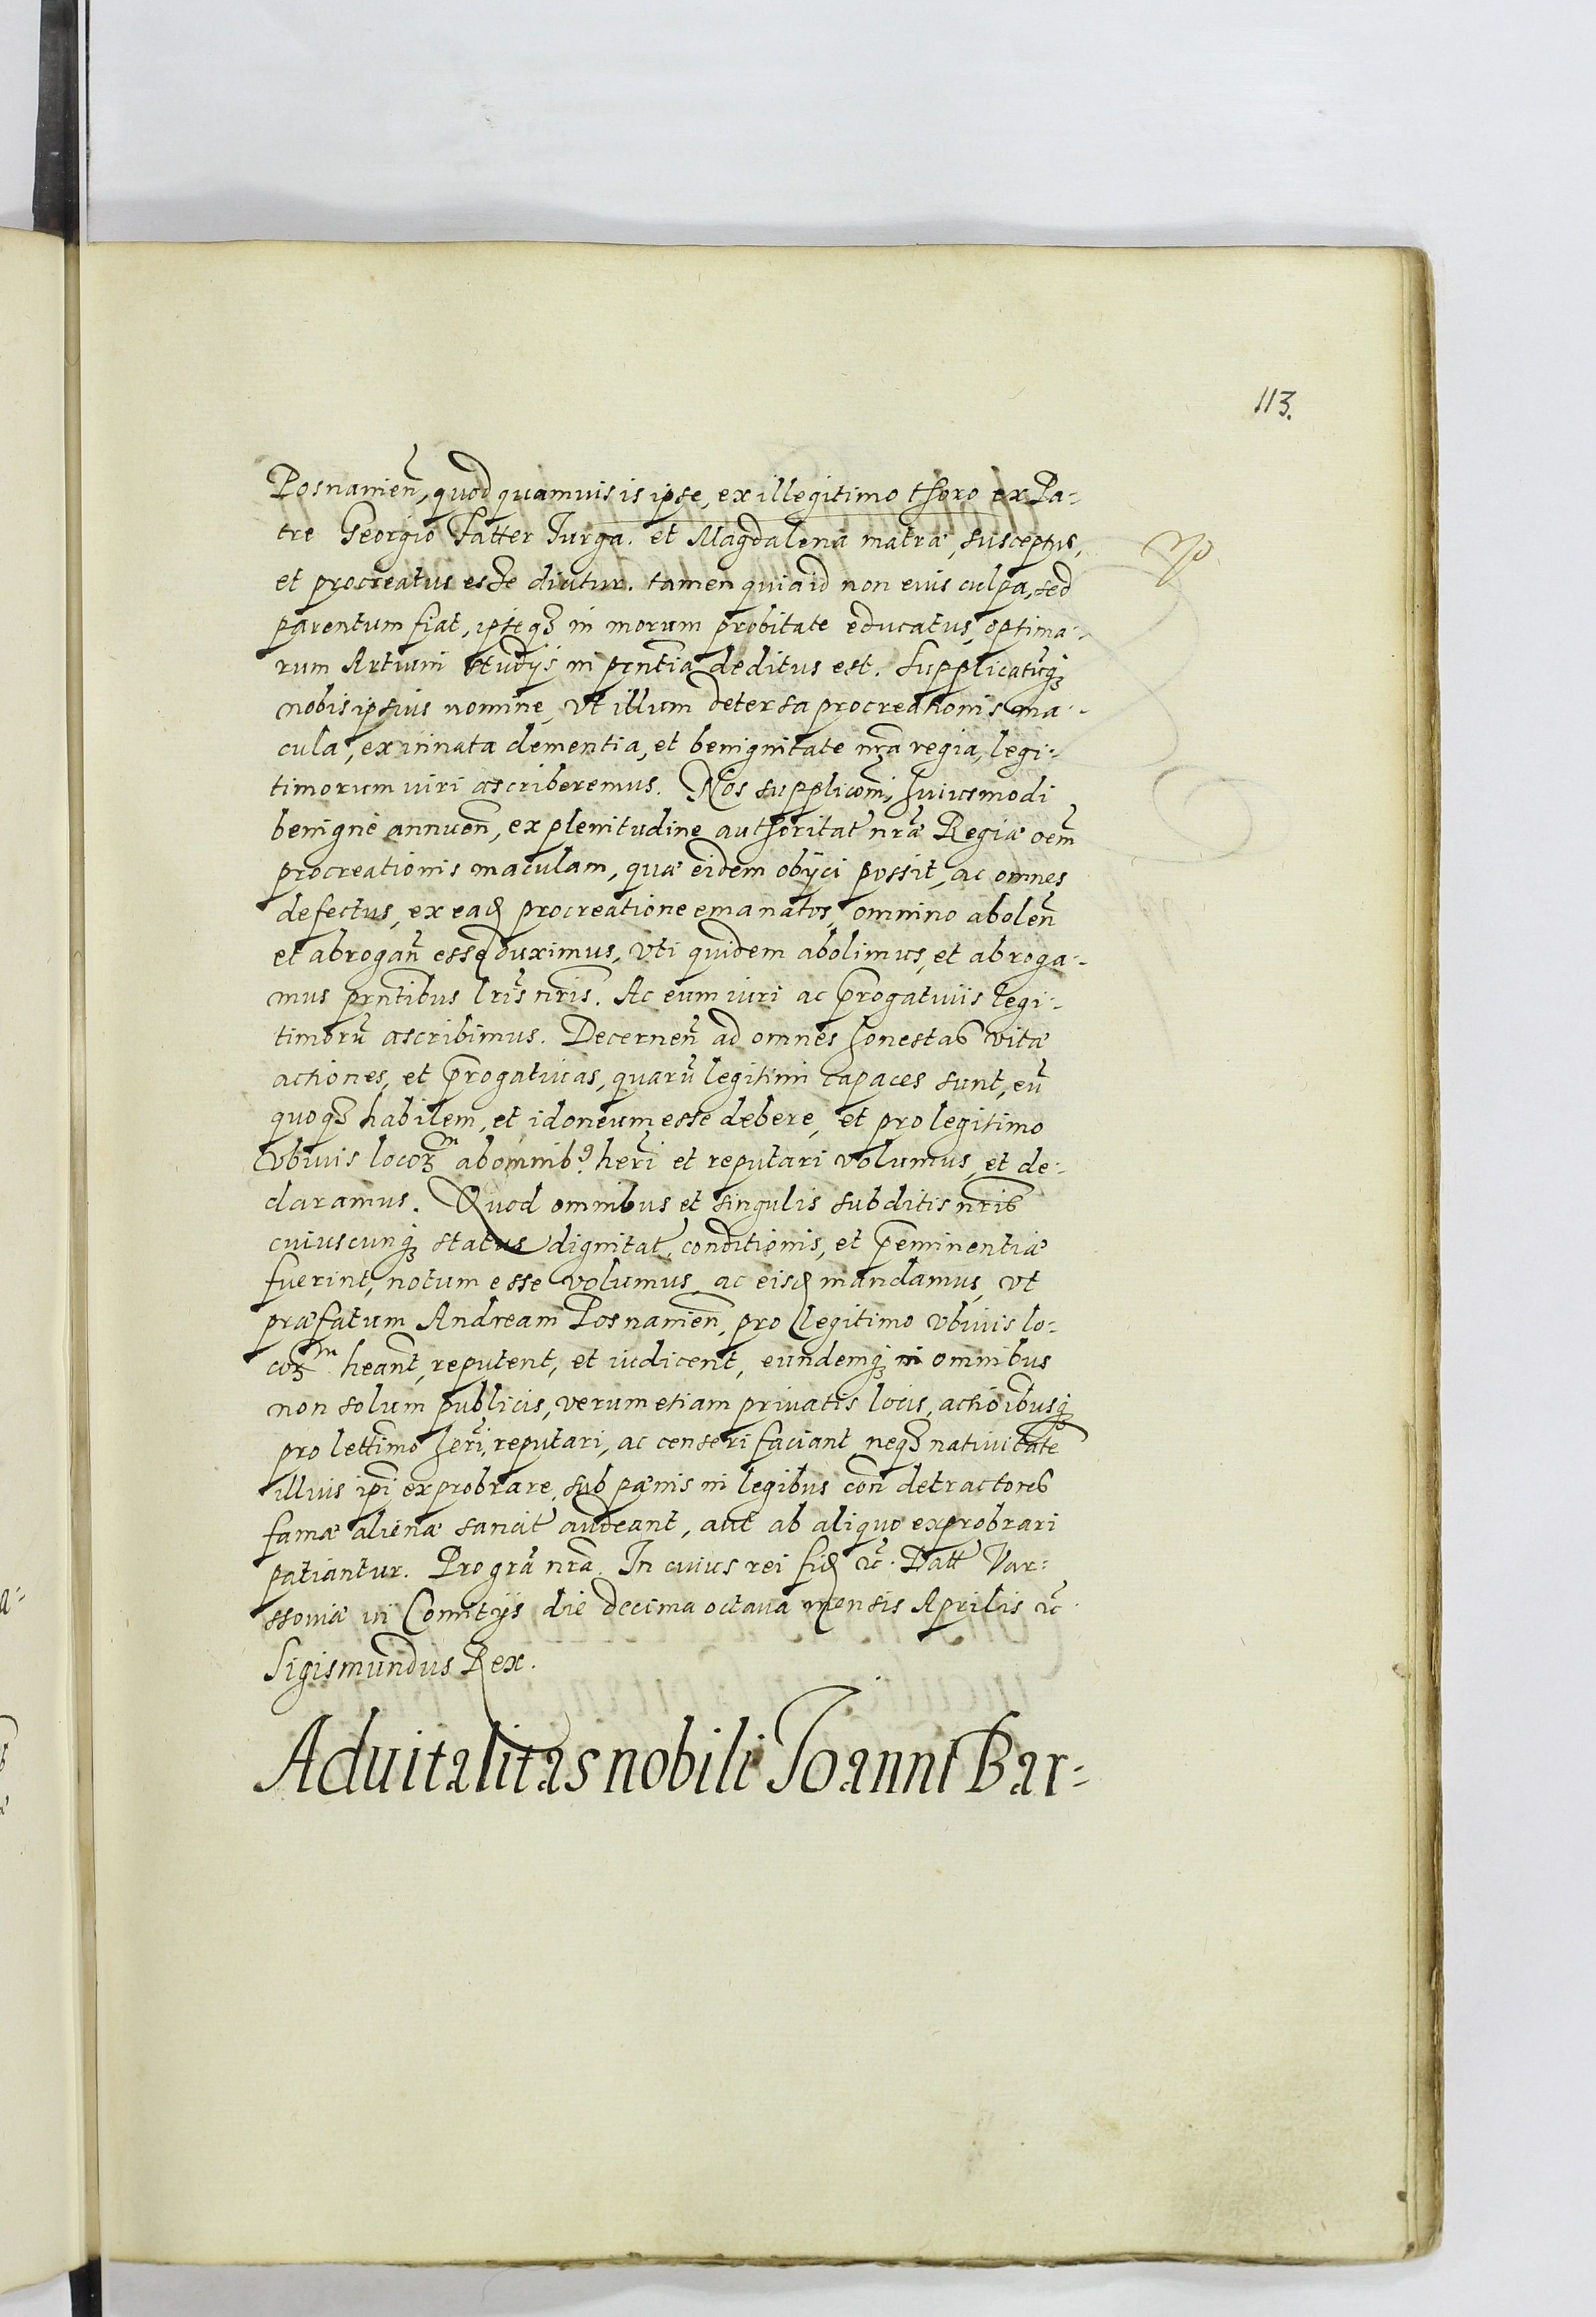 113.
Posnanien̄, quod quamuis is ipse, ex illegitimo thoro ex Pa-
tre Georgio Tatter Jurga. et Magdalena matræ, susceptus,
et procreatus esse dicitur. tamen quia id non eius culpa, sed
parentum fiat, ipseq̃ in morum probitate educatus, optima-
rum Artium studijs in pn̄tia deditus est. Supplicatūq̃
nobis ipsius nomine, vt illum detersa procreationis ma-
cula, ex innata clementia, et benignitate nr̄a regia, legi-
timorum iuri ascriberemus. Nos supplicōni huiusmodi
benignè annuen̄, ex plenitudine authoritat̄ nr̄æ Regiæ oēm
procreationis maculam, quæ eidem obijci possit, ac omnes
defectus, ex ead procreatione emanatos, omnino abolen̄
et abrogan̄ esse duximus, vti quidem abolimus, et abroga-
mus prn̄tibus lr̄is nr̄is. Ac eum iuri ac p̄rogatiuis legi-
timorū ascribimus. Decernen̄ ad omnes honestas vitæ
actiones, et p̄rogatiuas, quarū legitimi capaces sunt, eū
quoq̃ habilem, et idoneum esse debere, et pro legitimo
vbiuis locor̄m ab omnib9 her̄i et reputari volumus, et de-
claramus. Quod omnibus et singulis subditis nr̄is
cuiuscunq̃ status dignitat̄, conditionis, et p̄eminentiæ
fuerint, notum esse volumus, ac eisd mandamus, vt
præfatum Andream Posnanien̄, pro legitimo vbiuis lo-
cor̄m heant̄, reputent, et iudicent, eundemq̃ in omnibus
non solum publicis, verum etiam priuatis locis, actiōibusq̃
pro lettimo her̄i, reputari, ac censeri faciant, neq̃ natiuitatē
illius ip̄i exprobrare, sub pænis in legibus con̄ detractores
famæ alienæ sancit̄ audeant, aut ab aliquo exprobrari
patiantur. Pro grā nr̄a. In cuius rei fid etc̄. Datt Var-
ssouiæ in Comitijs die decima octaua mensis Aprilis etc̄
Sigismundus Rex.
Aduitalitas nobili Joanni Bar-